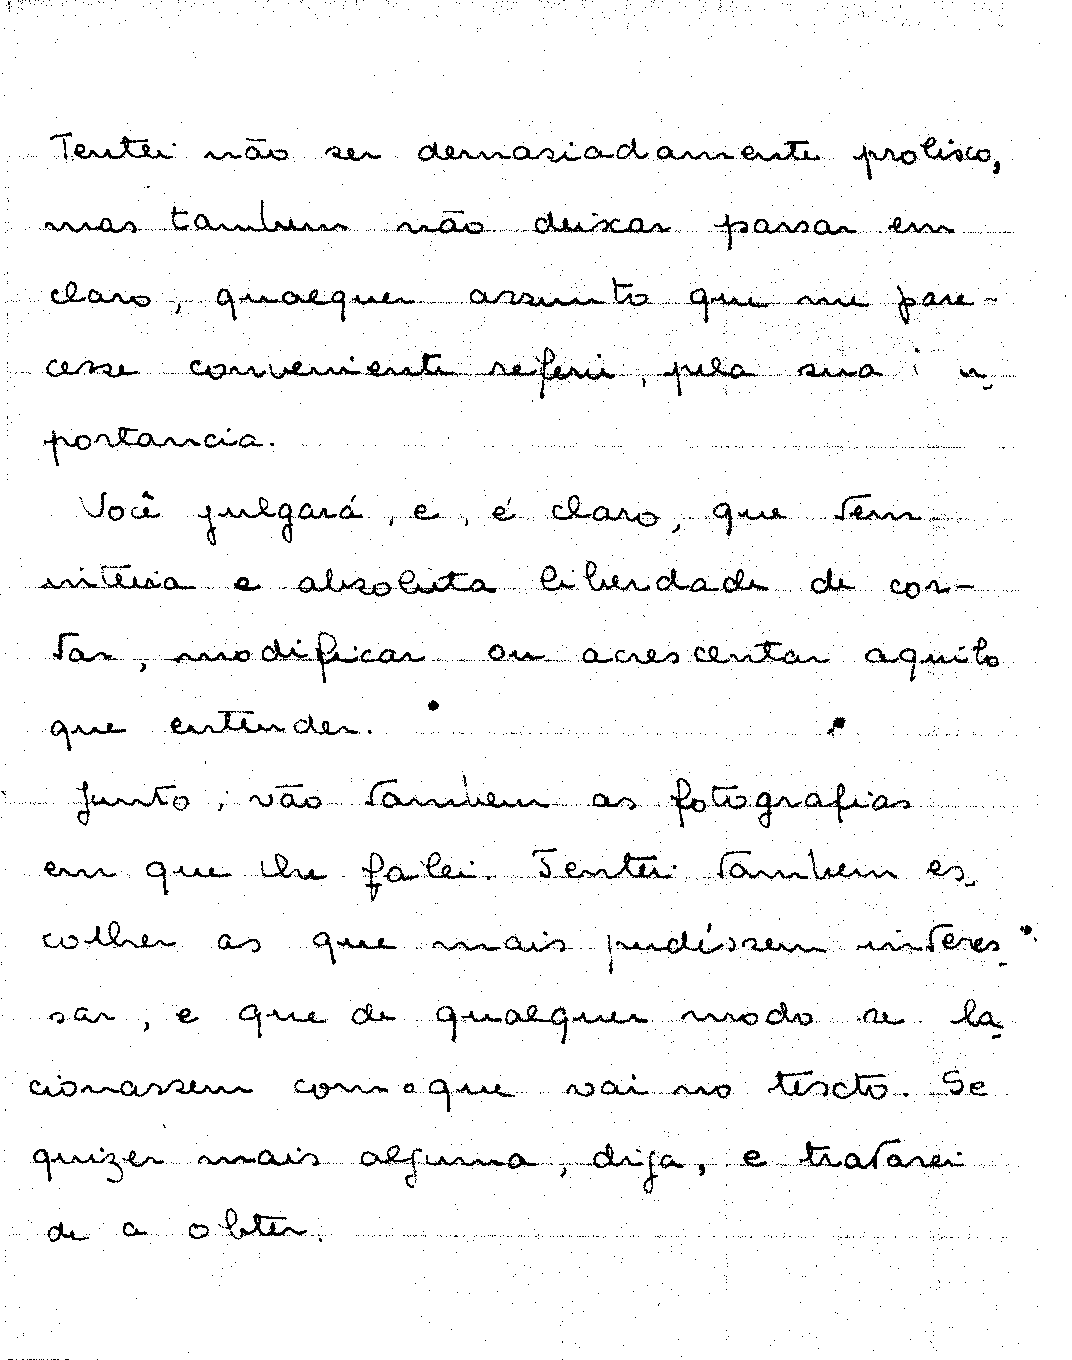 Tentei não ser demasiadamente prolixo,
mas tambem não deixar passar em
claro, qualquer assunto que me pare-
cesse conveniente referir, pela sua im-
portancia.
Você julgará, e, é claro, que tem
inteira e absoluta liberdade de cor-
tar, modificar ou acrescentar aquilo
que entender.
Junto, vão tambem as fotografias
em que lhe falei. Tentei tambem es-
colher as que mais pudéssem interes-
sar, e que de qualquer modo se la-
cionassem com o que vai no texto. Se
quizer mais alguma, diga, e tratarei
de a obter.